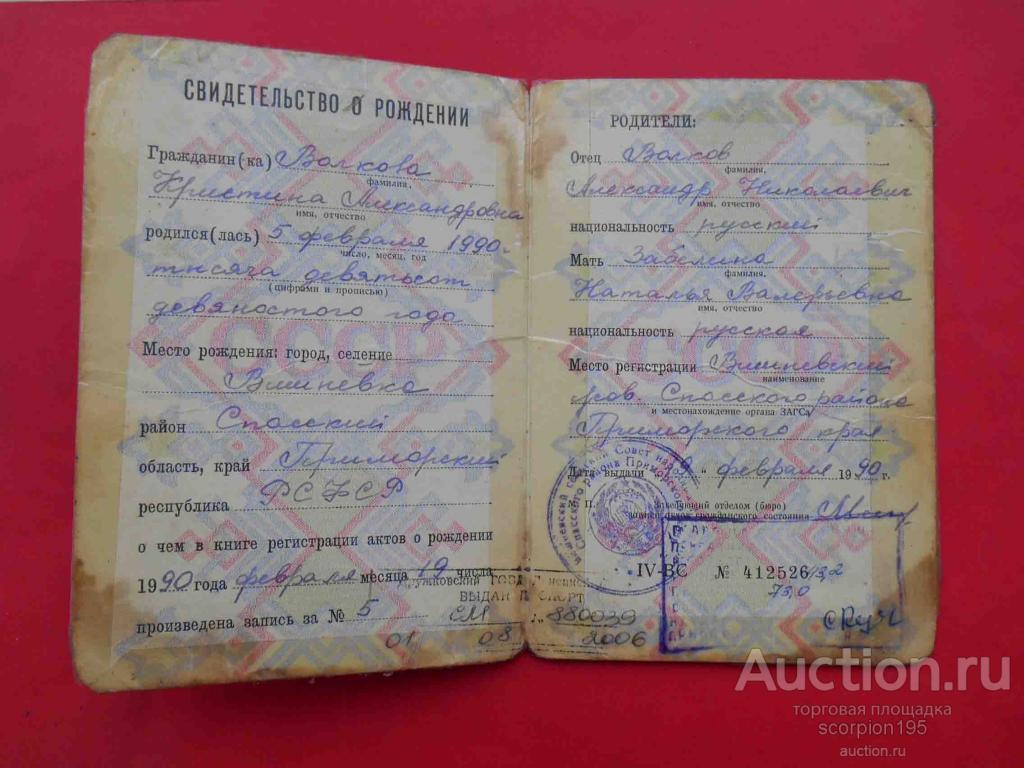 СВИДЕТЕЛЬСТВО О РОЖДЕНИИ
Гражданин(ка) Волкова
фамилия,
Кристина Александровна
имя, отчество
родился(лась) 5 февраля 1990
число, месяц, год
тысяча девятьсот
(цифрами и прописью)
девяностого года
Место рождения: город, селение
Вишнёвка
район Спасский
область, край Приморский
республика РСФСР
о чем в книге регистрации актов о рождении
1990 года февраля месяца 19 числа
произведена запись за № 5
РОДИТЕЛИ:
Отец Волков
фамилия,
Александр Николаевич
имя, отчество
национальность русский
Мать Забелина
фамилия,
Наталья Валерьевна
имя, отчество
национальность русская
Место регистрации Вишневский
наименование
сов. Спасского района
и местонахождение органа ЗАГСа
Приморского края
Дата выдачи февраля 1990 г.
М. П. Заведующий отделом (бюро)
записи актов гражданского состояния
IV-ВС № 412526
ВЫДАН ПАСПОРТ
СМ 880039
01 08 2006
СССР
Auction.ru
торговая площадка
scorpion195
auction.ru